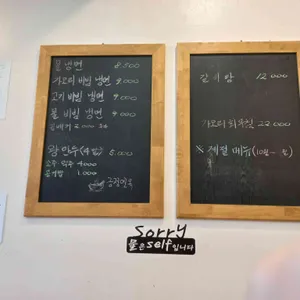 물 냉면 8,500
가오리 비빔 냉면 9,000
고기 비빔 냉면 9,000
불 비빔 냉면 9,000
곱빼기 2,000 추가
왕 만두 (4알) 5,000
소주 맥주 4,000
공기밥 1,000
갈비탕 12,000
가오리 회무침 22,000
※ 계절 메뉴 (10월~
sorry
물은 self 입니다